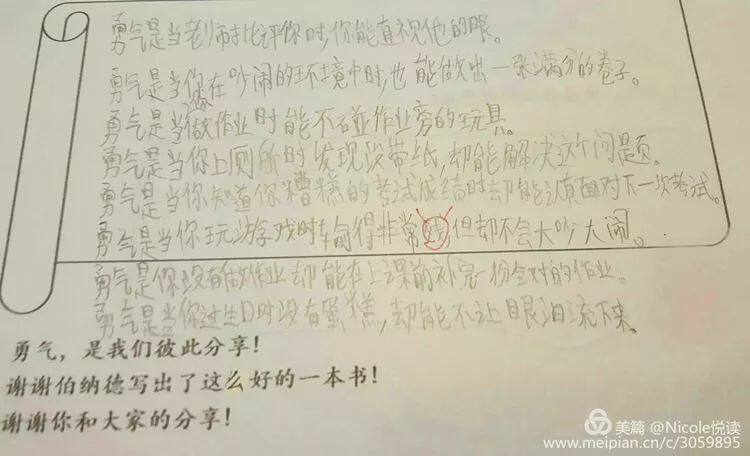 勇气是当老师批评你时,你能直视他的眼。
勇气是当你在吵闹的环境中时,也能做出一张满分的卷子。
勇气是当你做作业时能不碰作业旁的玩具。
勇气是当你上厕所时发现没带纸,却能解决这个问题。
勇气是当你知道你糟糕的考试成绩时却能认真面对下一次考试。
勇气是当你玩游戏时输得非常,但却不会大吵大闹。
勇气是你没有做作业却能在上课前补完一份全对的作业。
勇气是当你过生日时没有蛋糕,却能不让眼泪流下来。
勇气,是我们彼此分享!
谢谢伯纳德写出了这么好的一本书!
谢谢你和大家的分享!
美篇 @Nicole悦读
www.meipian.cn/c/3059895